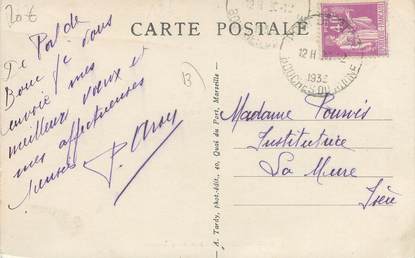 20 €
CARTE POSTALE
De Port de
Bouc je vous
envoie mes
meilleurs vœux et
mes affectueuses
pensées
13
A. Tardy, phot.-édit., 40, Quai du Port, Marseille
12 H
1933
BOUCHES DU RHONE
Madame
Institutrice
La Mure
Isère